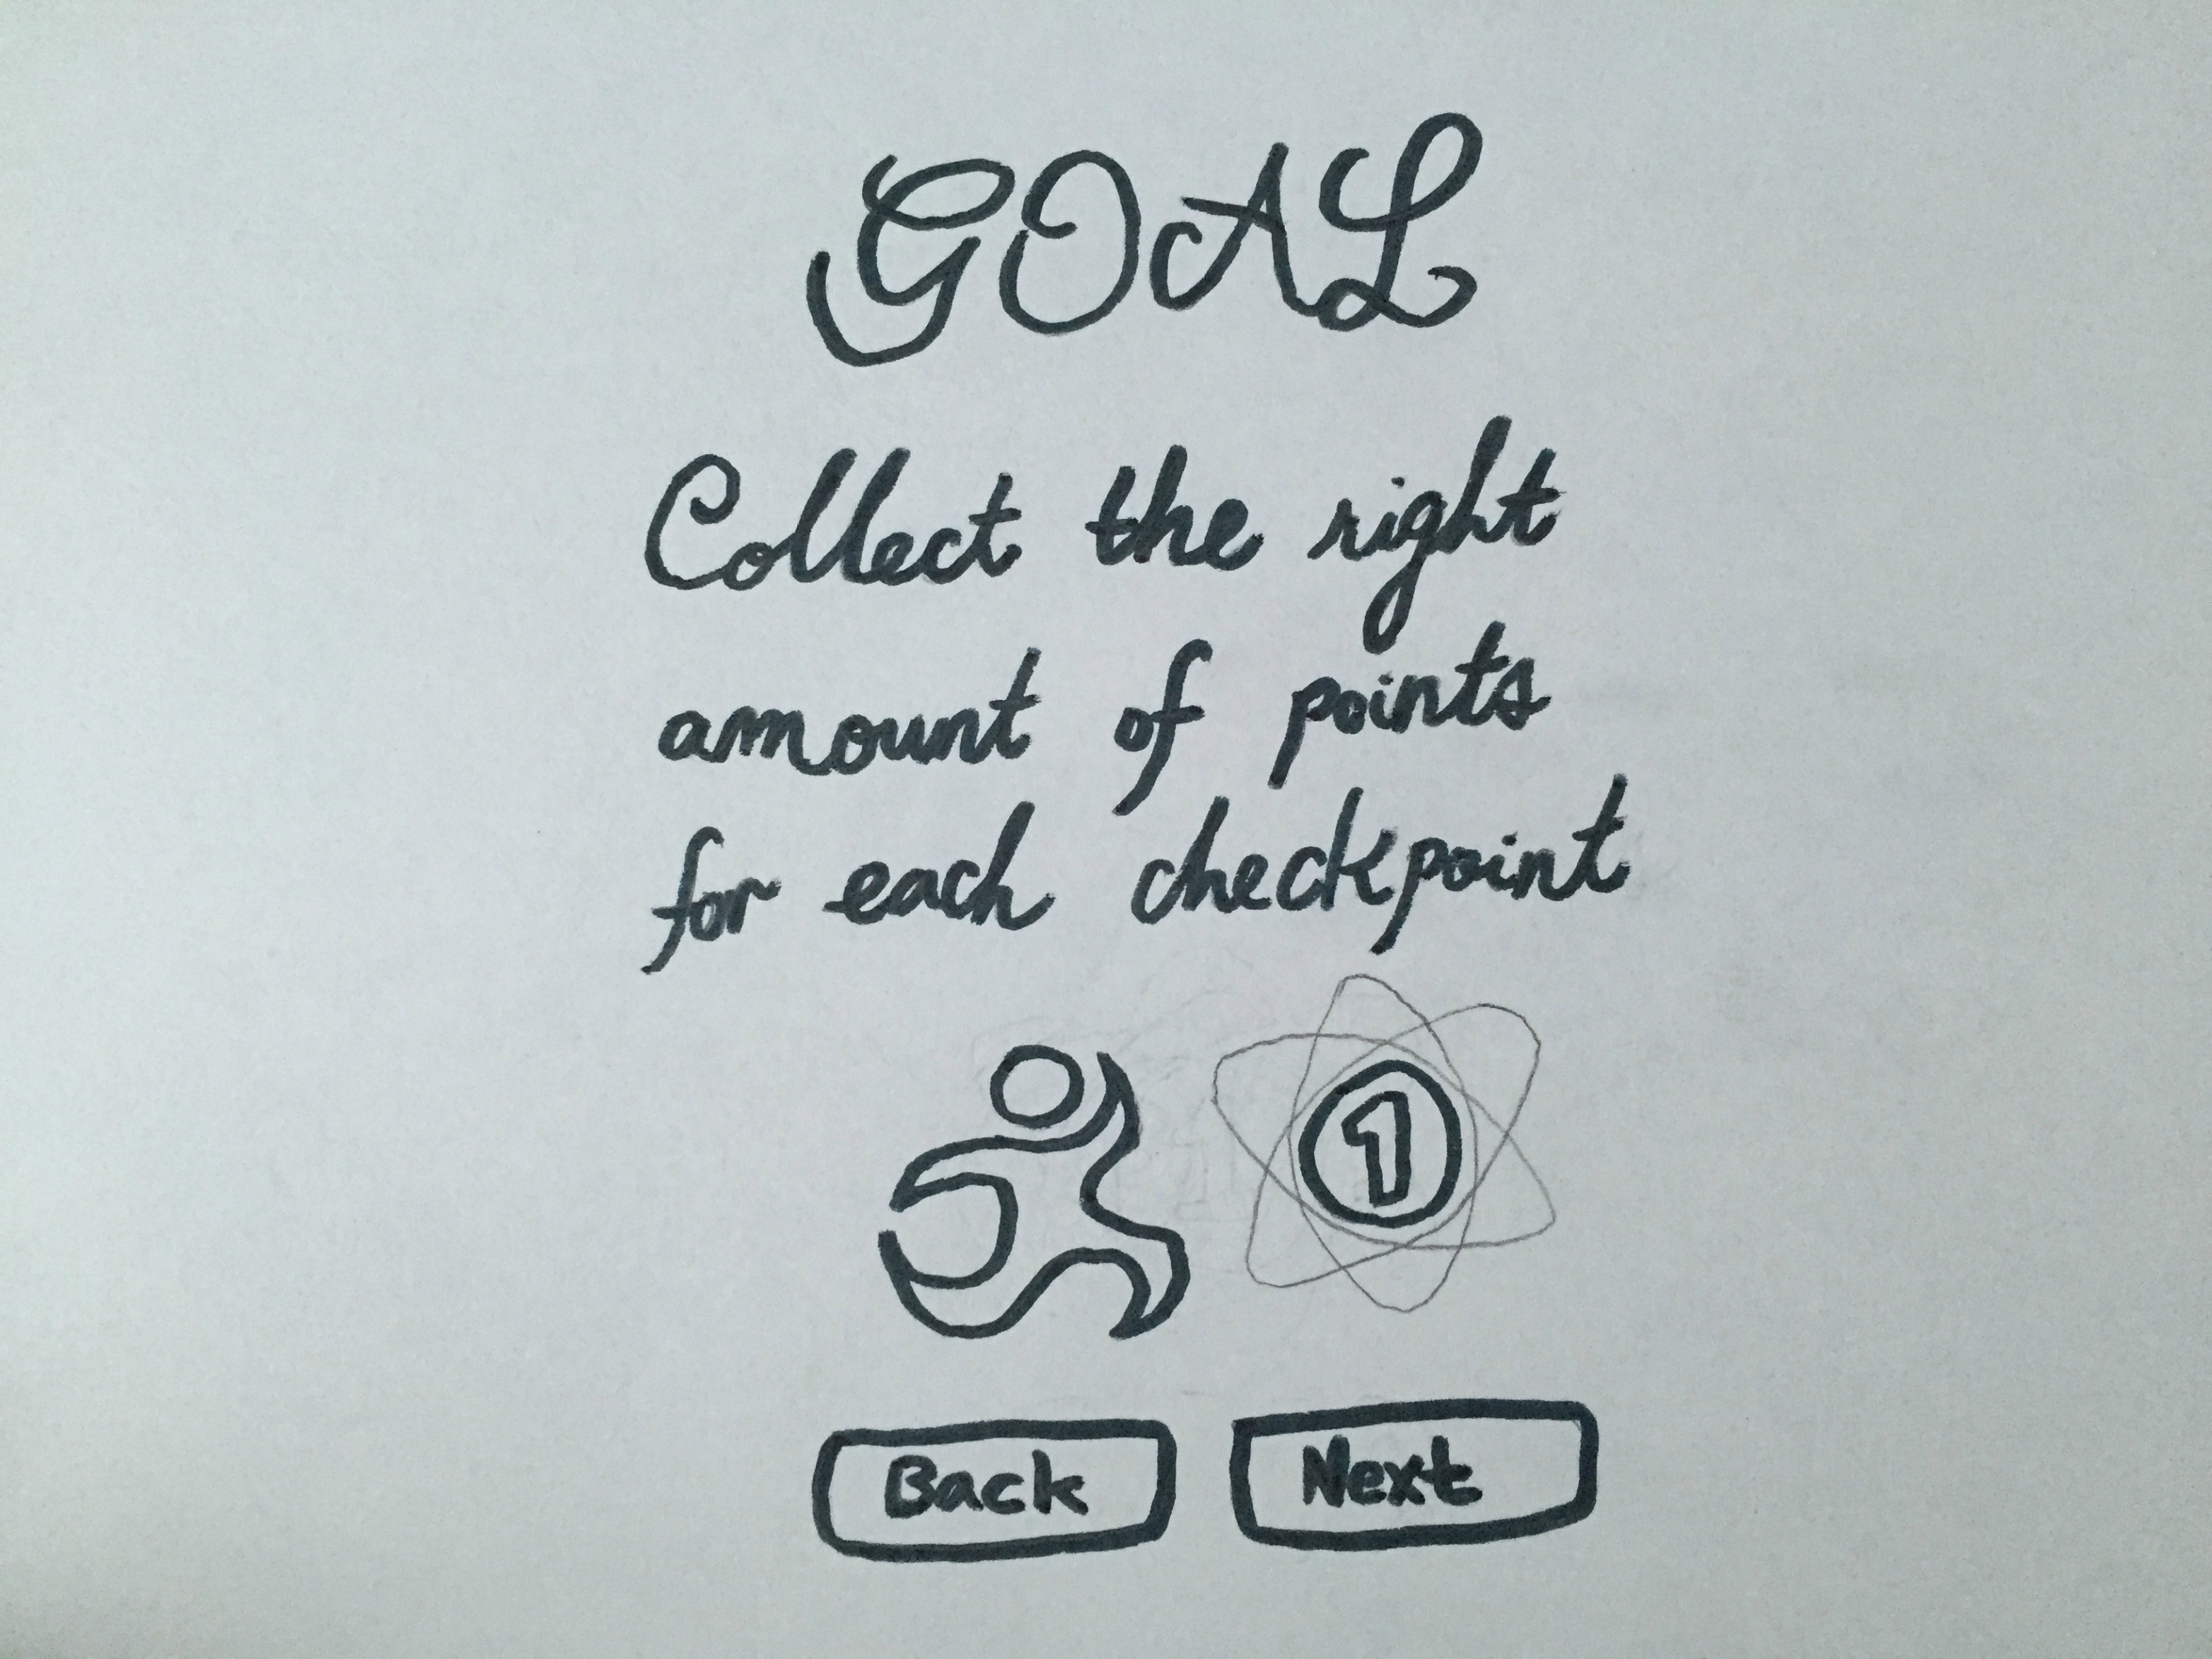 GOAL
Collect the right
amount of points
for each checkpoint
1
Back Next